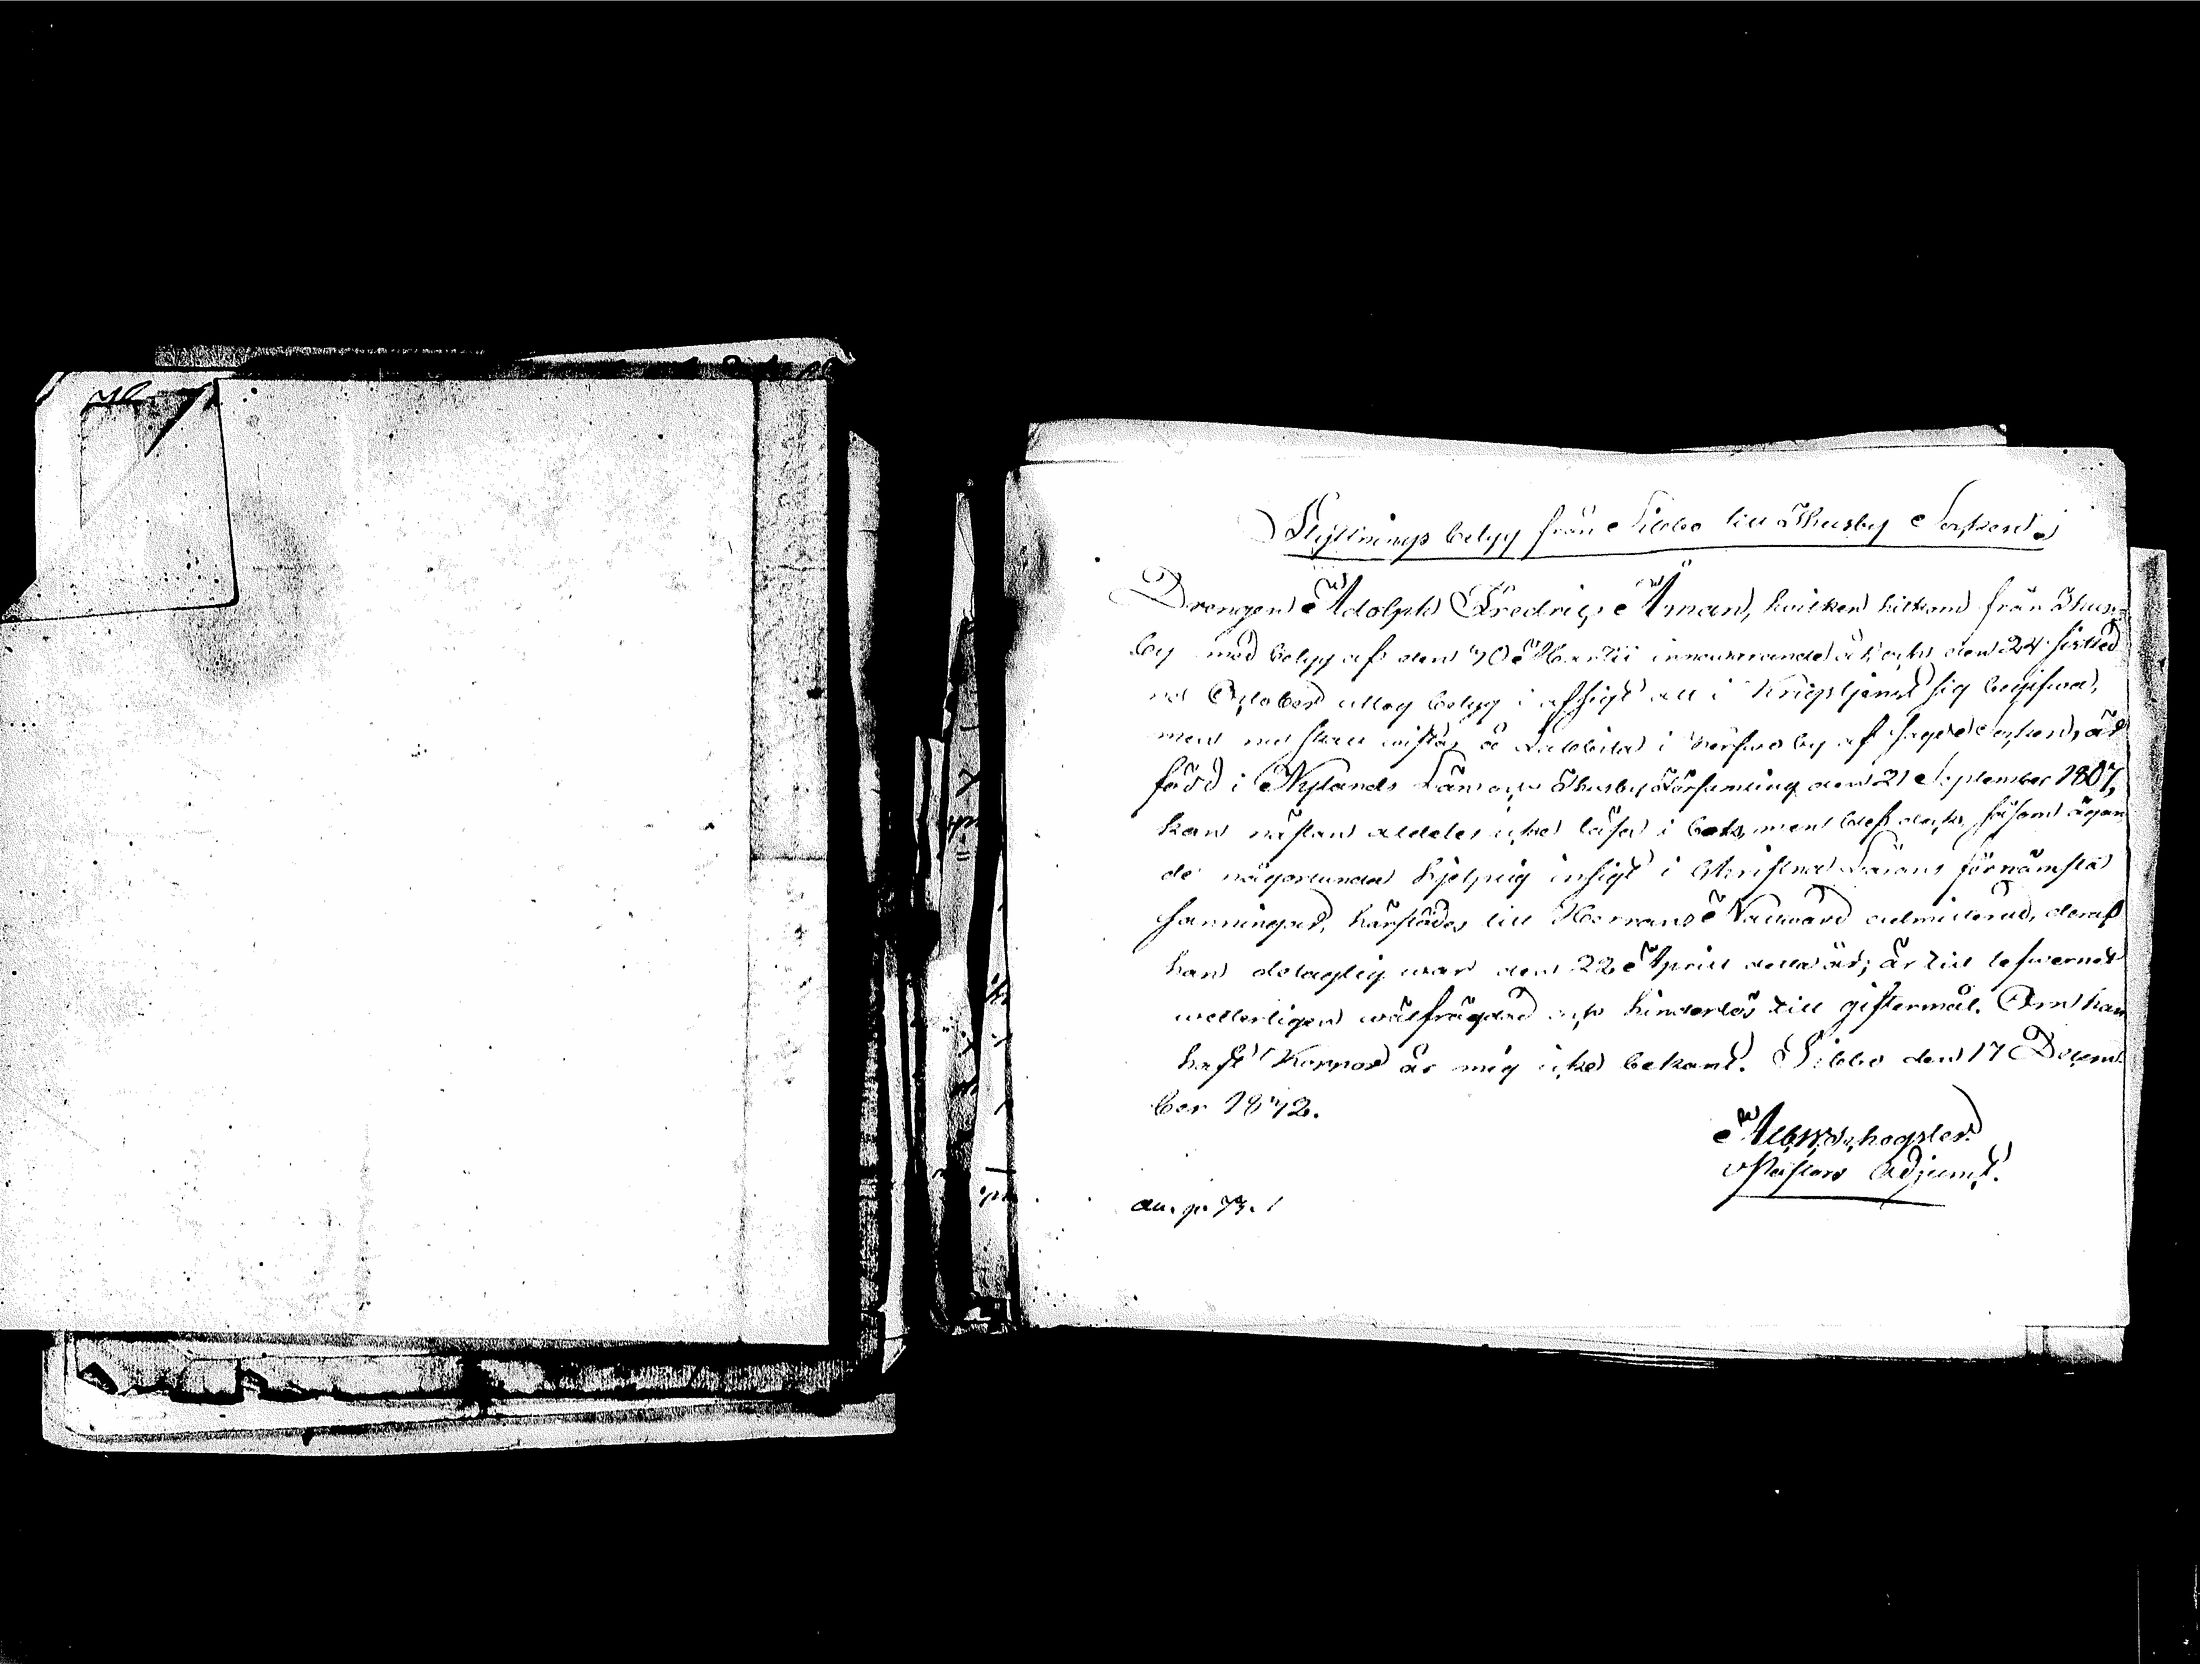 Flyttnings betyg från Sibbo till Thusby Socken.
Drengen Adolph Fredric Åman, hvilken hitkom från Thus=
by med betyg af den 10 Martii innevarande år och den 24 sistled
ne October uttog betyg i afsigt att i Krigstjenst sig begifva,
men nu skall vistas å Labbila i by af sagde Socken, är
född i Nylands Län och Thusby Församling den 21 September 1807,
kan nästan aldeles icke läsa i bok, men blef dock, såsom ägan
de någorlunda hjelplig insigt i Christna Lärans förnämsta
sanningar, härstädes till Herrans Nattvard admitterad, deraf
han delagtig war den 22 April detta år; är till lefwernet
wetterligen wälfrägdad och hinderlös till giftermål. Om han
haft Koppor är mig icke bekant. Sibbo den 17 Decem
ber 1842.
Pastors Adjunct.